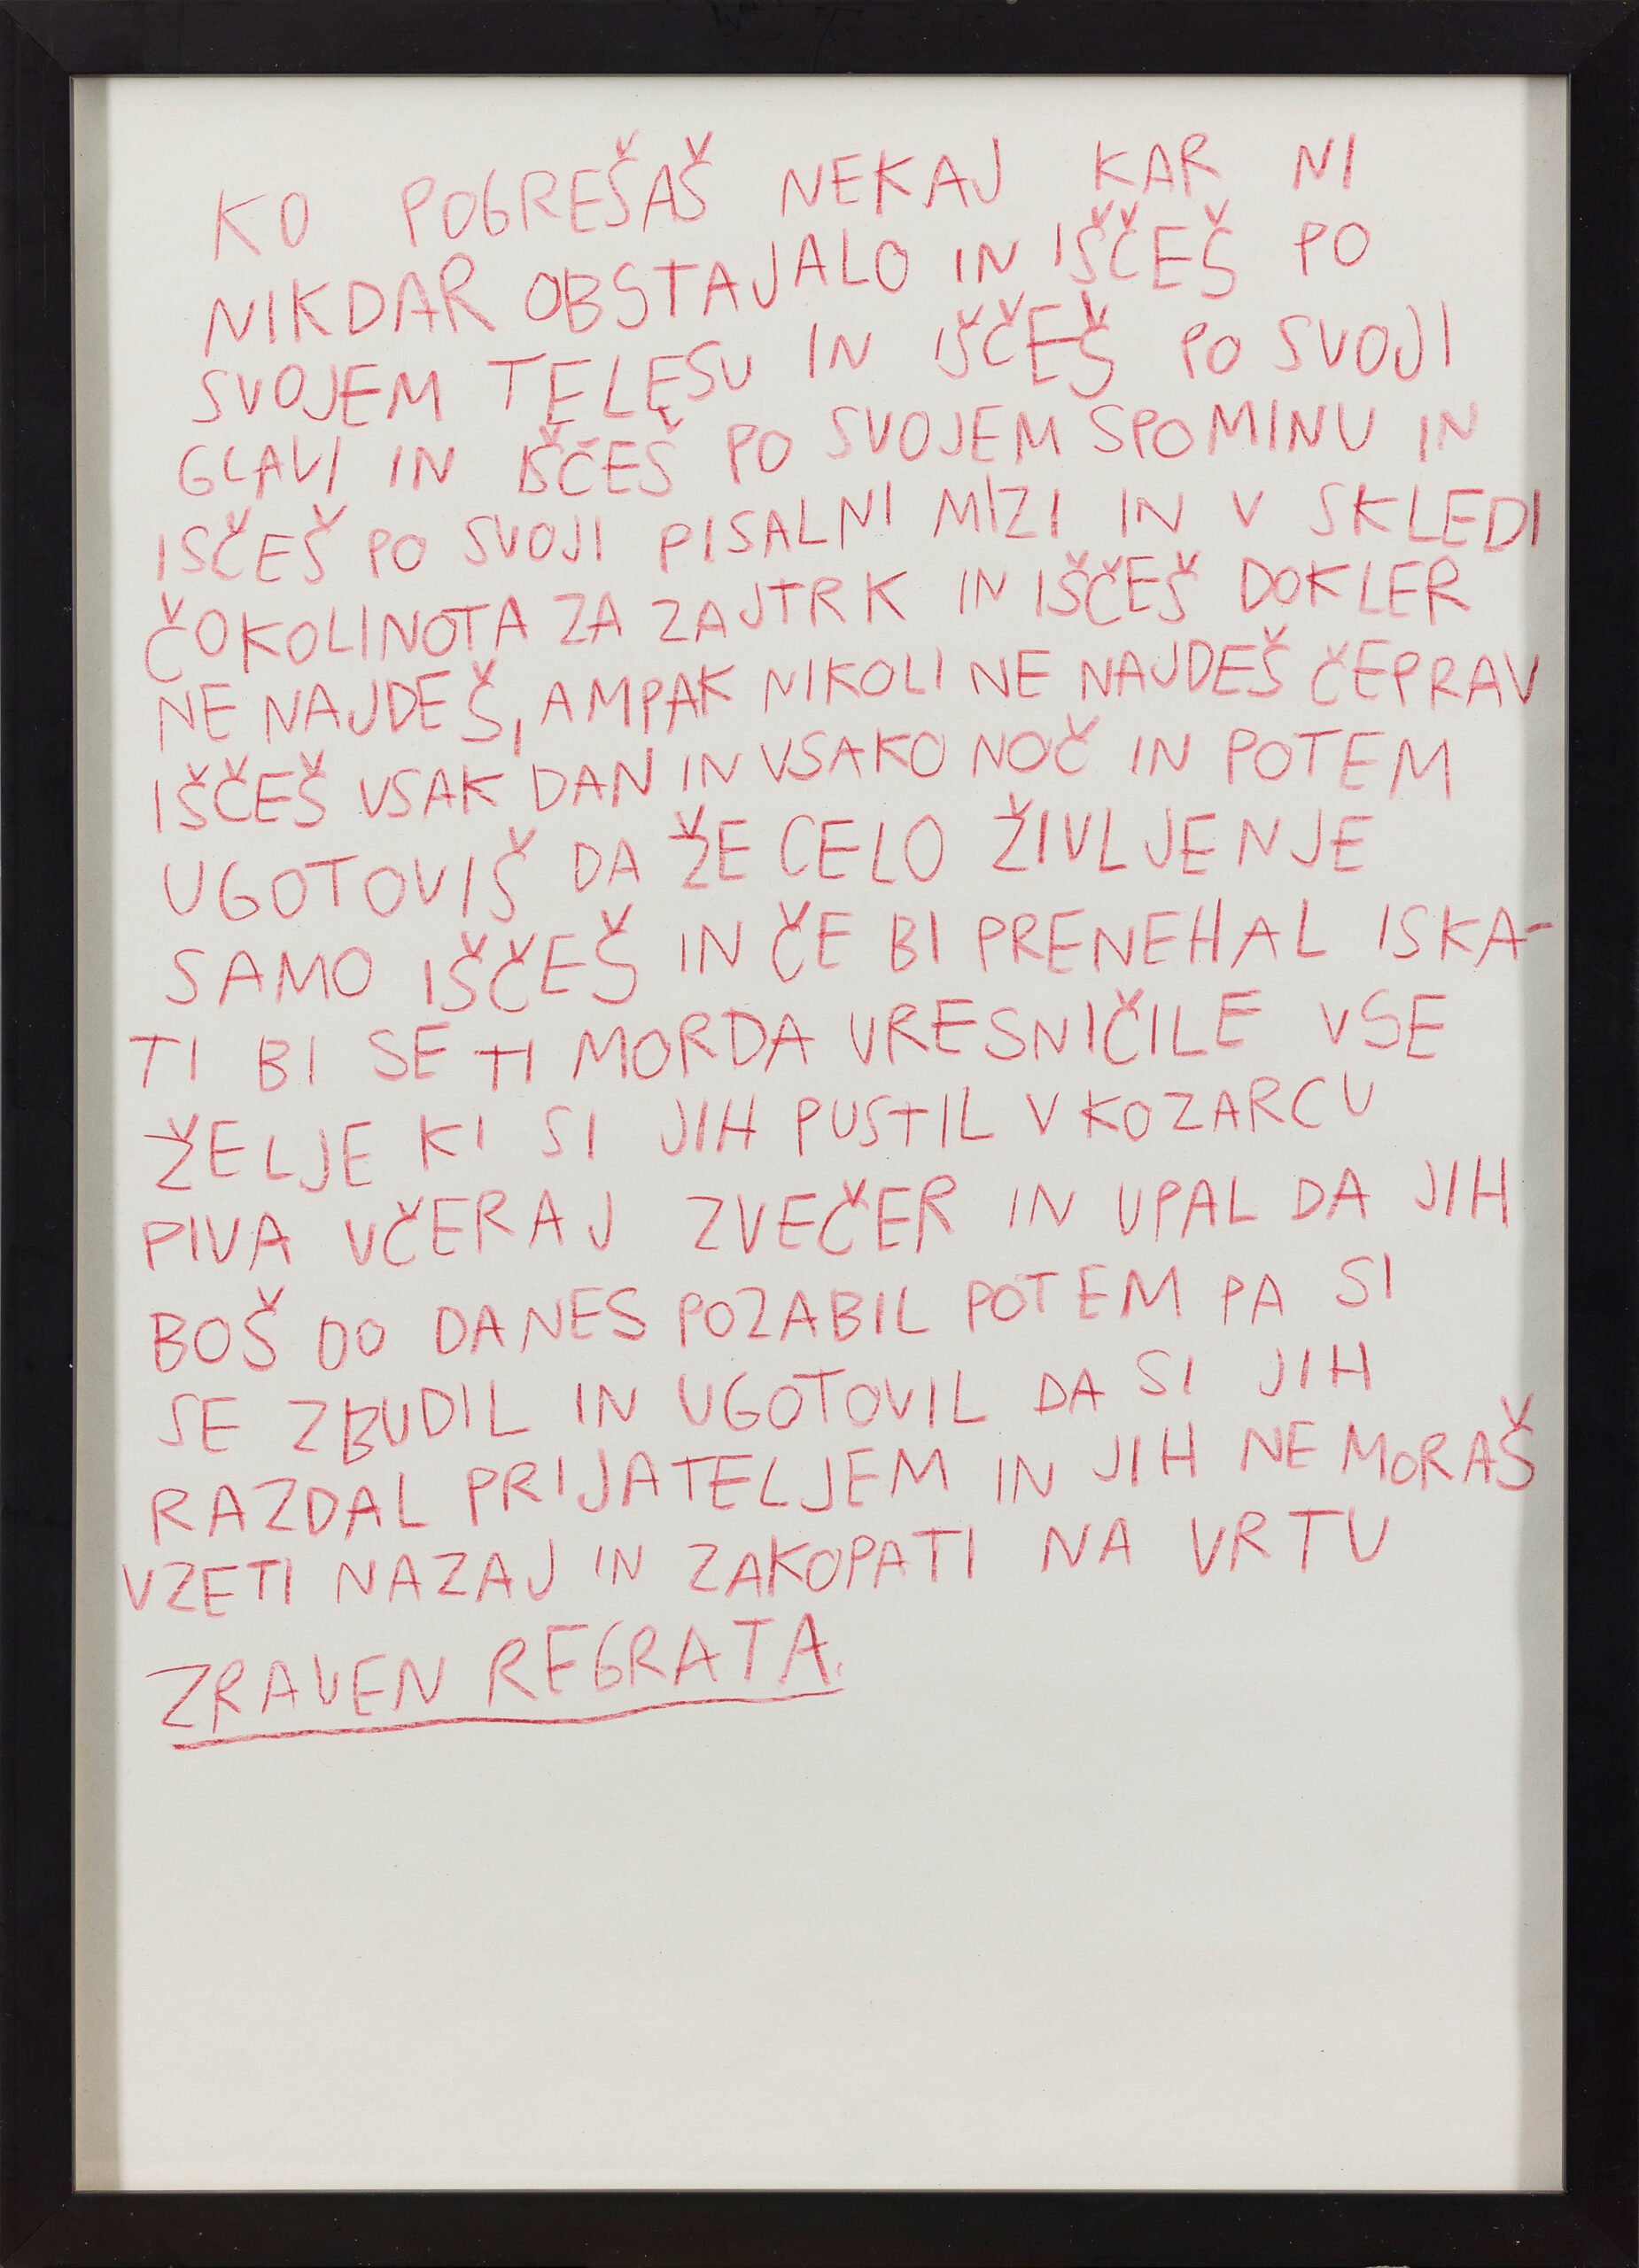 KO POGREŠAŠ NEKAJ KAR NI
NIKDAR OBSTAJALO IN IŠČEŠ PO
SVOJEM TELESU IN IŠČEŠ PO SVOJI
GLAVI IN IŠČEŠ PO SVOJEM SPOMINU IN
ISČEŠ PO SVOJI PISALNI MIZI IN V SKLEDI
ČOKOLINOTA ZA ZAJTRK IN IŠČEŠ DOKLER
NE NAJDEŠ, AMPAK NIKOLI NE NAJDEŠ ČEPRAV
IŠČEŠ VSAK DAN IN VSAKO NOČ IN POTEM
UGOTOVIŠ DA ŽE CELO ŽIVLJENJE
SAMO IŠČEŠ IN ČE BI PRENEHAL ISKA-
TI BI SE TI MORDA URESNIČILE VSE
ŽELJE KI SI JIH PUSTIL V KOZARCU
PIVA VČERAJ ZVEČER IN UPAL DA JIH
BOŠ DO DANES POZABIL POTEM PA SI
SE ZBUDIL IN UGOTOVIL DA SI JIH
RAZDAL PRIJATELJEM IN JIH NE MORAŠ
VZETI NAZAJ IN ZAKOPATI NA VRTU
ZRAVEN REGRATA.